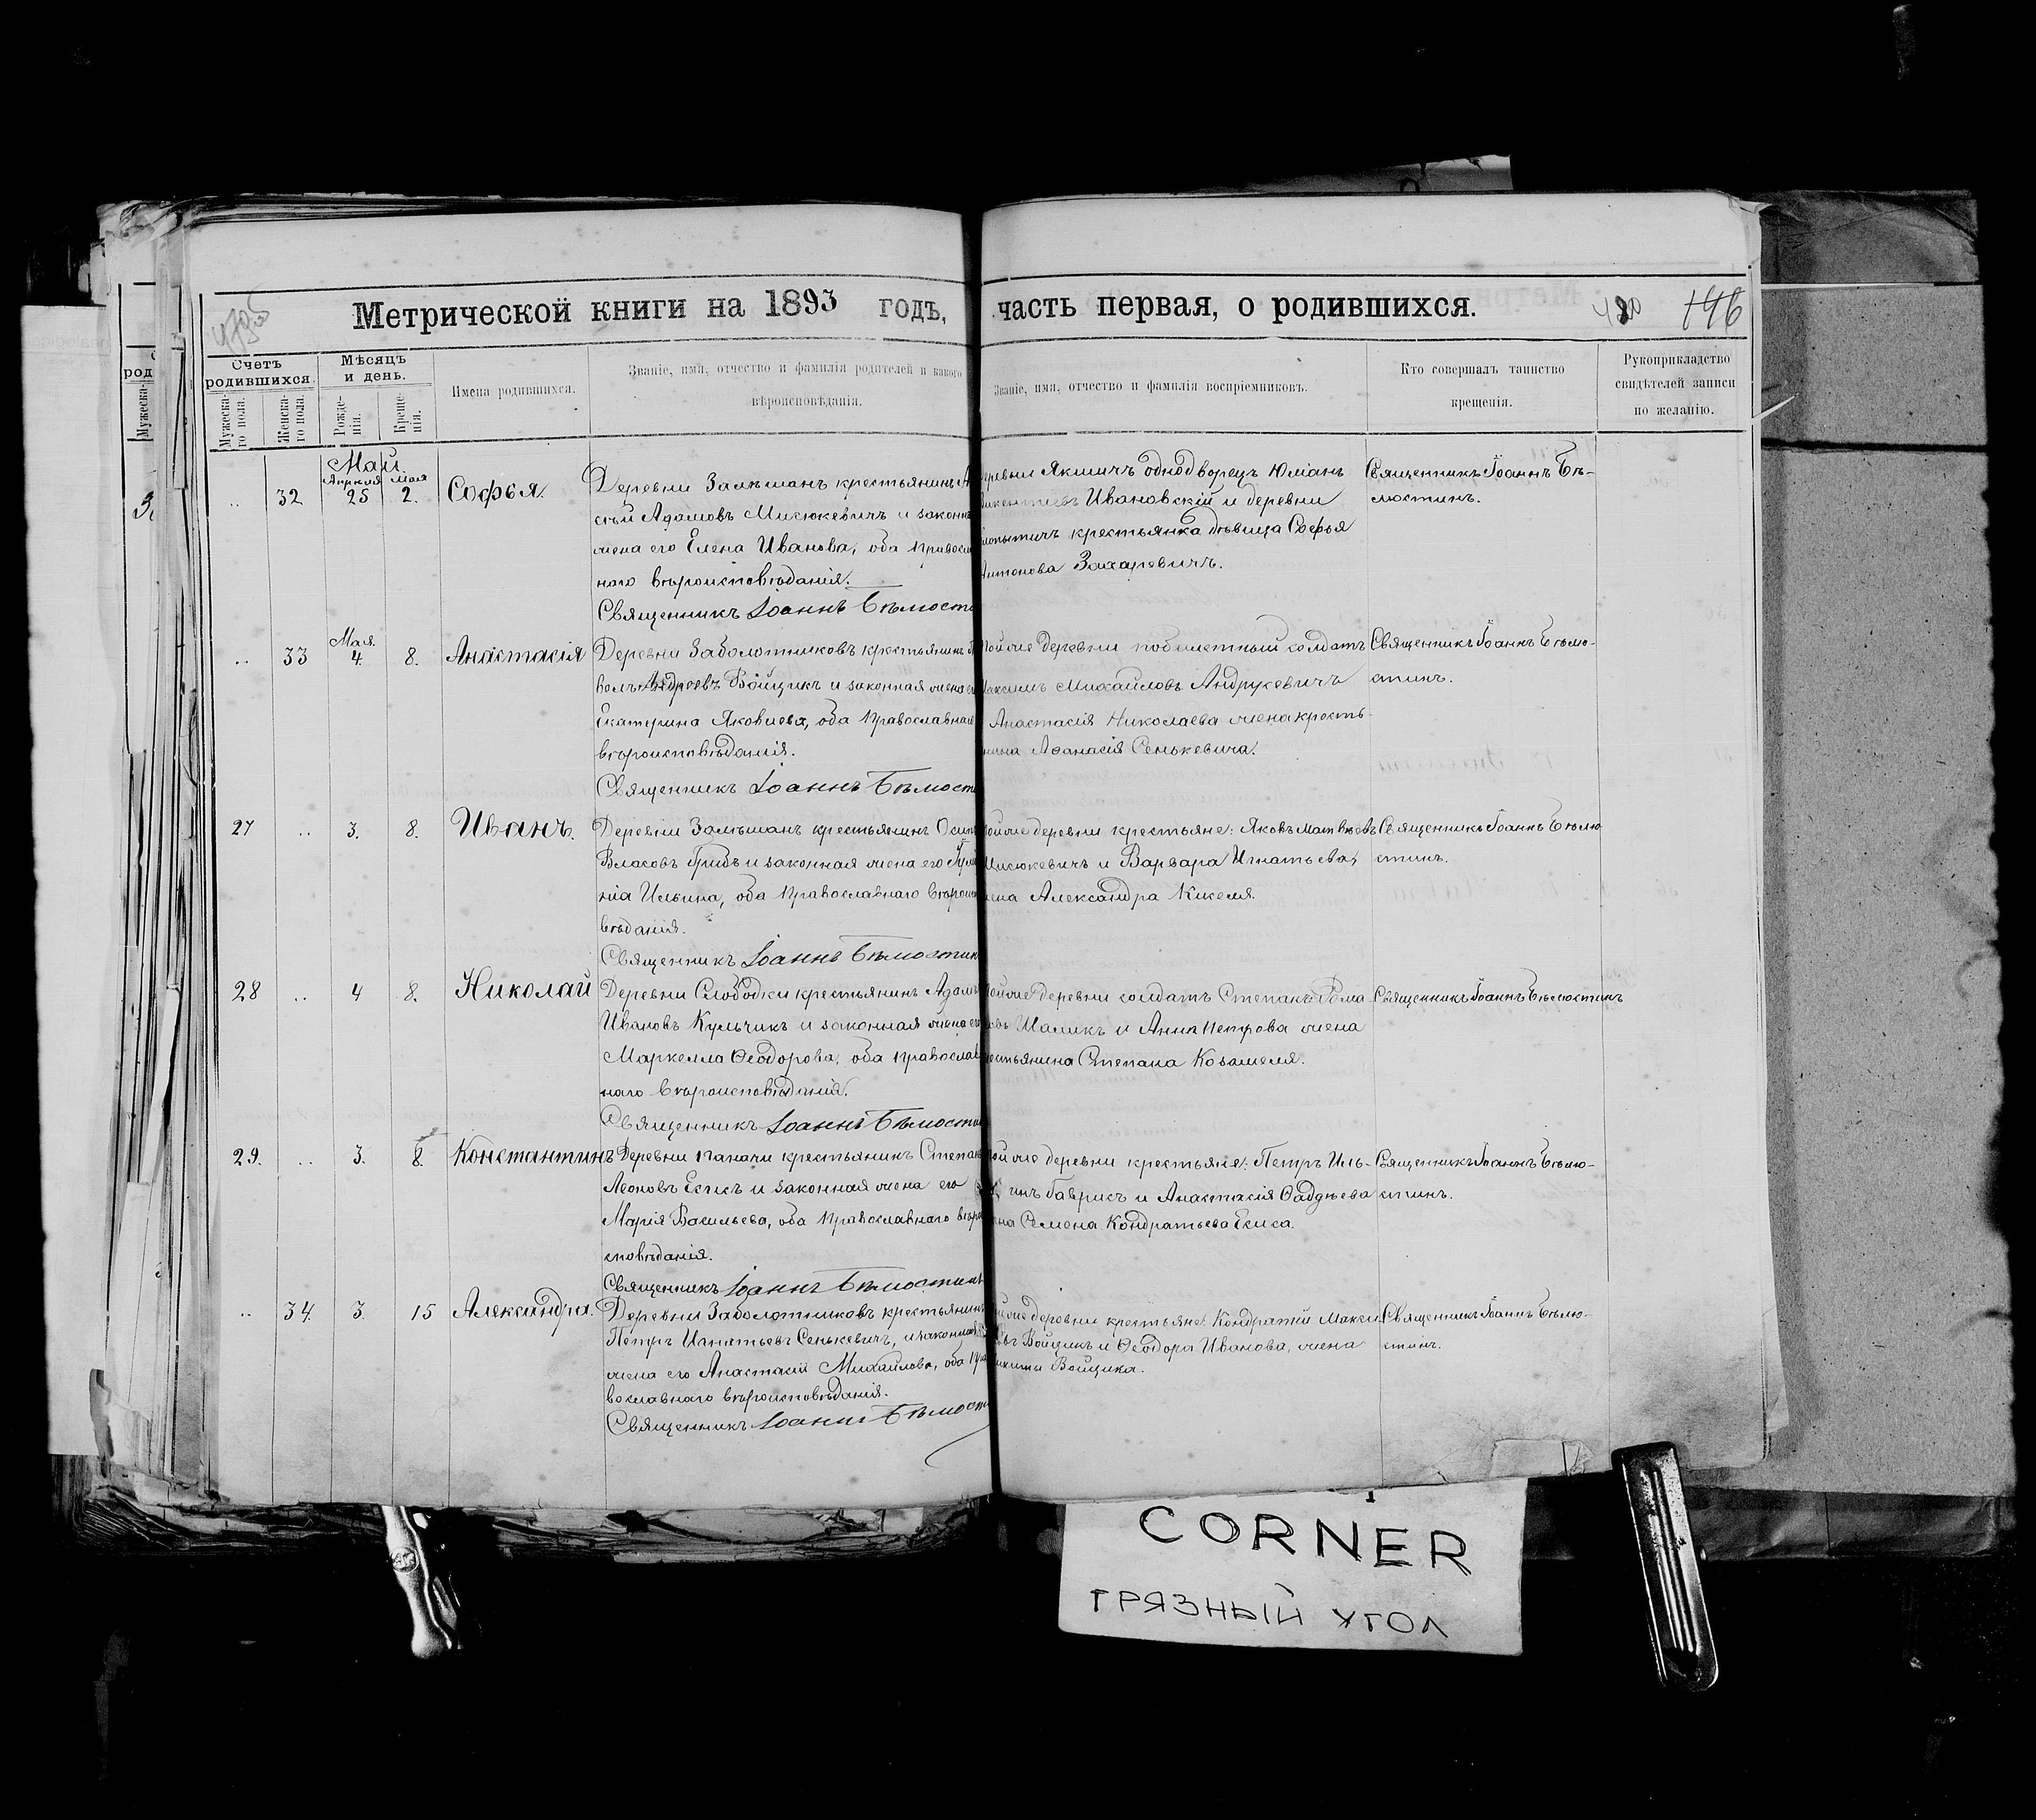 Метрической книги на 1893 годъ, часть первая, о родившихся.
480 146
Счетъ родившихся.
Мужеска-го пола.
Женска-го пола.
Мѣсяцъ и день.
Рожде-нія.
Креще-нія.
Имена родившихся.
Званіе, имя, отчество и фамилія родителей и какого
вѣроисповѣданія.
Званіе, имя, отчество и фамилія воспріемниковъ.
Кто совершалъ таинство
крещенія.
Рукоприкладство
свидѣтелей записи
по желанію.
Май.
Апрѣля Мая
.. 32 25 2. Софья.
Деревни Залѣшанъ крестьянинъ
Адамовъ Мисюкевичъ и законн
жена его Елена Иванова, оба правосл
наго вѣроисповѣданія.
Священникъ Іоаннъ Бѣлюсти
деревни Якшичъ однодворецъ Юліанъ
Викентіевъ Ивановскій и деревни
крестьянка дѣвица Софья
Антонова Захаревичъ.
Священникъ Іоаннъ Бѣ-
люстинъ.
Мая.
.. 33 4. 8. Анастасія
Деревни Заболотниковъ крестьянинъ
велъ Андреевъ Войщикъ и законная жена ег
Екатерина Яковлева, оба православнаго
вѣроисповѣданія.
Священникъ Іоаннъ Бѣлюсти
Той же деревни побилетный солдатъ
Максимъ Михайловъ Андрукевичъ
Анастасія Николаева жена кресть-
янина Аѳанасія Сенькевича.
Священникъ Іоаннъ Бѣлю-
стинъ.
27 .. 3. 8. Иванъ.
Деревни Залѣшанъ крестьянинъ Осипъ
Власовъ Грибъ и законная жена его
нія Ильина, оба православнаго вѣроиспо
вѣданія.
Священникъ Іоаннъ Бѣлюстин
Той же деревни крестьяне: Яковъ Матвѣевъ
Мисюкевичъ и Варвара Игнатьева,
жена Александра Кикеля.
Священникъ Іоаннъ Бѣлю
стинъ.
28 .. 4 8. Николай
Деревни Слободки крестьянинъ Адамъ
Ивановъ Кульчикъ и законная жена его
Маркелла Ѳеодорова, оба православ
наго вѣроисповѣданія.
Священникъ Іоаннъ Бѣлюсти
Той же деревни солдатъ Степанъ Рома
новъ Шаликъ и Анна Петрова жена
крестьянина Степана Козлшеля.
Священникъ Іоаннъ Бѣлюстинъ
29. .. 3. 8. Константинъ
Деревни крестьянинъ Степанъ
Леоновъ Есисъ и законная жена его
Марія Васильева, оба православнаго вѣро
сповѣданія.
Священникъ Іоаннъ Бѣлюстинъ
Той же деревни крестьяне: Петръ Иль-
инъ Гаврисъ и Анастасія Ѳаддѣева
жена Семена Кондратьева Есиса.
Священникъ Іоаннъ Бѣлю-
стинъ.
.. 34. 3. 15 Александра.
Деревни Заболотниковъ крестьянинъ
Петръ Игнатьевъ Сенькевичъ, и законная
жена его Анастасія Михайлова, оба пра
вославнаго вѣроисповѣданія.
Священникъ Іоаннъ Бѣлюсти
Той же деревни крестьяне: Кондратій Макси
мовъ Войщикъ и Ѳеодора Иванова, жена
Никиты Войщика.
Священникъ Іоаннъ Бѣлю-
стинъ.
CORNER
ГРЯЗНЫЙ УГОЛ